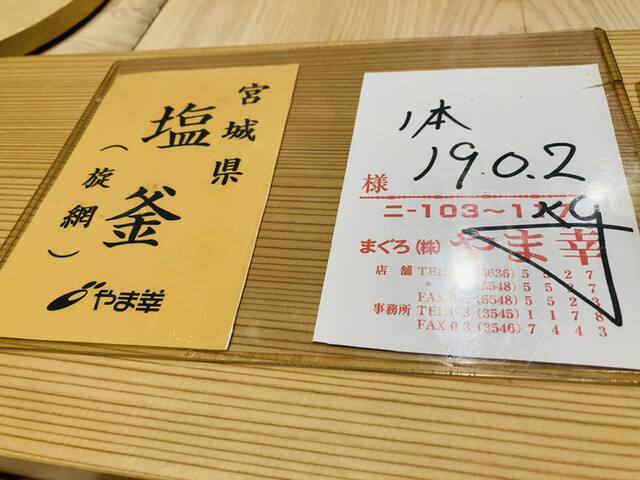 宮城県
塩釜
（旋網）
やま幸
1本
190.2
kg
様
ニ-103～1
まぐろ(株)やま幸
店舗 TEL (3636) 5527
(5548) 55 7
FAX (5548) 5523
事務所 TEL 03 (3545) 1178
FAX 03 (3546) 7443